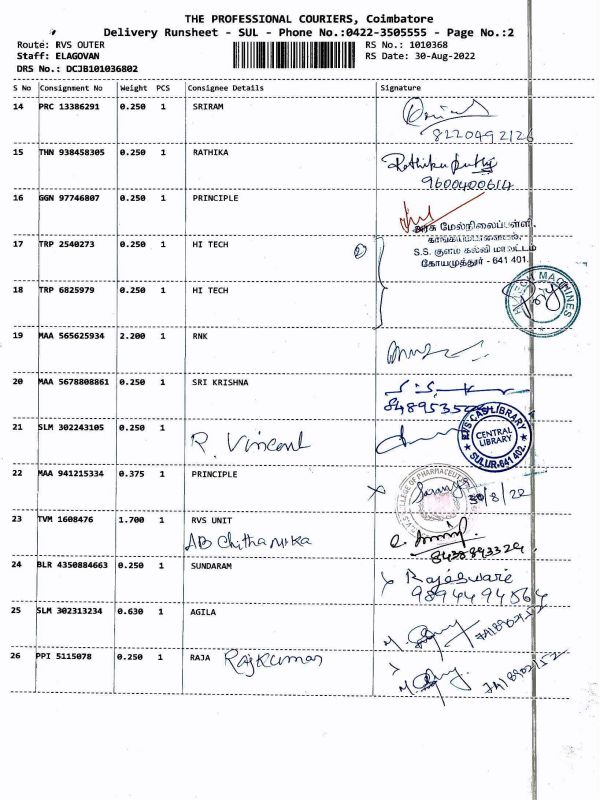 THE PROFESSIONAL COURIERS, Coimbatore
Delivery Runsheet - SUL - Phone No.:0422-3505555 - Page No.:2
Route: RVS OUTER RS No.: 1010368
Staff: ELAGOVAN RS Date: 30-Aug-2022
DRS No.: DCJB101036802
S No Consignment No Weight PCS Consignee Details Signature
14 PRC 13386291 0.250 1 SRIRAM
8220492126
15 THN 938458305 0.250 1 RATHIKA
9600400614
16 GGN 97746807 0.250 1 PRINCIPLE
அரசு மேல்நிலைப்பள்ளி.
17 TRP 2540273 0.250 1 HI TECH
S.S. குளம் கல்வி மாவட்டம்
கோயமுத்தூர் - 641 401.
18 TRP 6825979 0.250 1 HI TECH
MACHINES
19 MAA 565625934 2.200 1 RNK
20 MAA 5678808861 0.250 1 SRI KRISHNA
21 SLM 302243105 0.250 1
R. Vincent
RVS CAS LIBRARY
CENTRAL
LIBRARY
SULUR-641 402.
22 MAA 941215334 0.375 1 PRINCIPLE
30/8/22
23 TVM 1608476 1.700 1 RVS UNIT
24 BLR 4350884663 0.250 1 SUNDARAM
9894494564
25 SLM 302313234 0.630 1 AGILA
26 PPI 5115078 0.250 1 RAJA Rajkumar